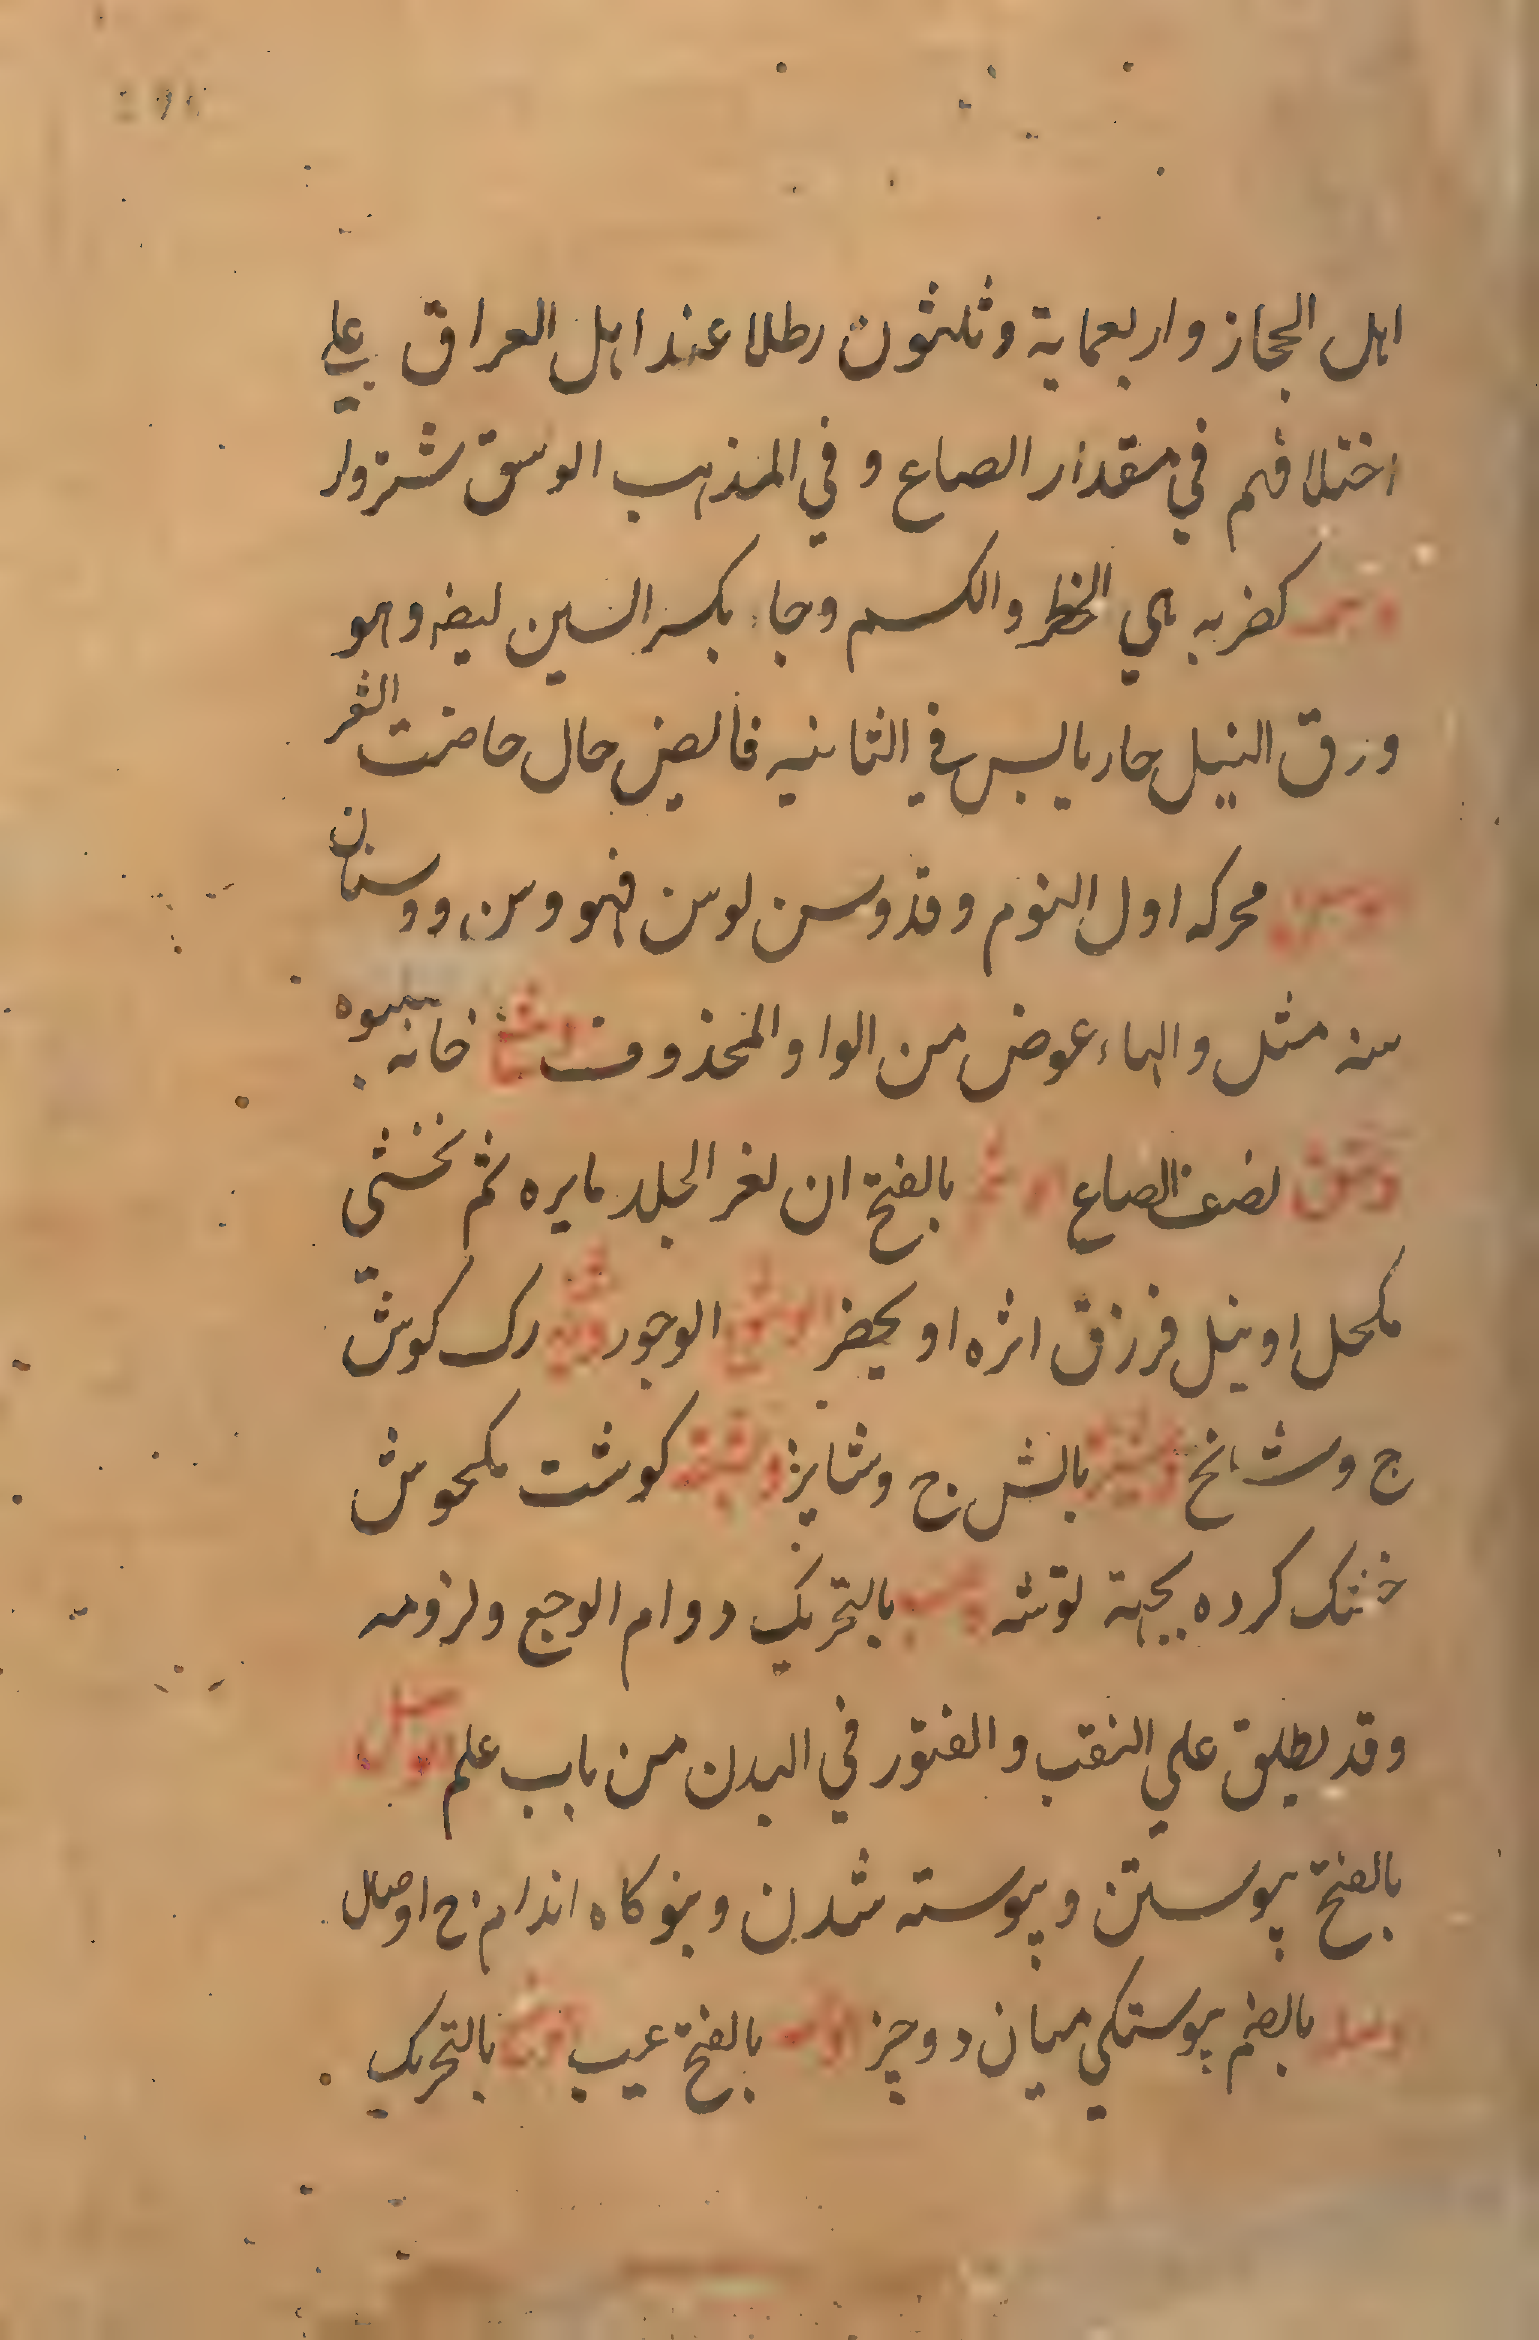 اهل الحجاز واربعماية وثلثون رطلا عند اهل العراق علي
اختلافهم في مقدار الصاع وفي المذهب الوسق شتروار
وسمه كضربه هي الخطر والكسم وجاء بكسر السين ليضه وهو
ورق النيل حار يابس في الثانيه قابض حال حاضت الثغر
وسن محركه اول النوم وقد وسن لوسن فهو وسن ووسنان
سنه مثل والهاء عوض من الواو المحذوف خانه
وشق لصف الصاع الوشم بالفتح ان لغر الجلد بابره ثم تحشي
بكحل او نيل فرزق اثره او يحضر الوشع الوجور رك كوش
ج وشايخ وشيزه بالش ج وشايز وشيقه كوشت مكحوش
خشك كرده بجهة توشه وصب بالتحريك دوام الوجع ولزومه
وقد يطلق علي التعب والفتور في البدن من باب علم الوصل
بالفتح پيوستن وپيوسته شدن وبنوكاه اندام ج اوصال
وصله بالضم پيوستكي ميان دو چيز بالفتح عيب بالتحريك